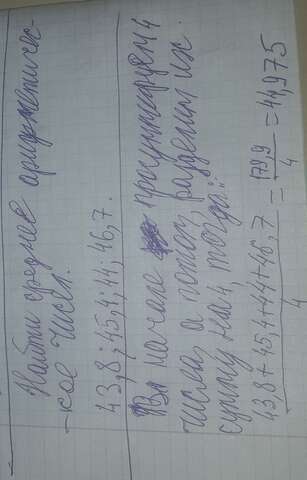 Найти среднее арифметичес-
-кое чисел.
43,8; 45,4; 44; 46,7.
В начале просуммируем 4
числа, а потом, разделим их
сумму на 4, тогда:
43,8+45,4+44+46,7/4 = 179,9/4 = 44,975